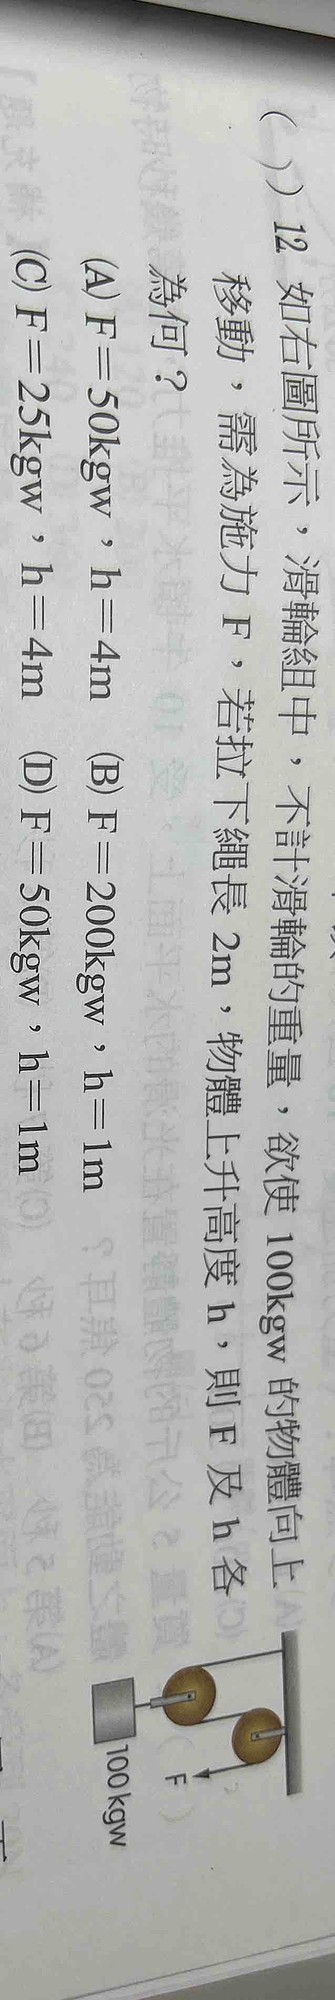 ( ) 12. 如右圖所示，滑輪組中，不計滑輪的重量，欲使 100kgw 的物體向上
移動，需為施力 F，若拉下繩長 2m，物體上升高度 h，則 F 及 h 各
為何？
(A) F＝50kgw，h＝4m (B) F＝200kgw，h＝1m
(C) F＝25kgw，h＝4m (D) F＝50kgw，h＝1m
F
100 kgw